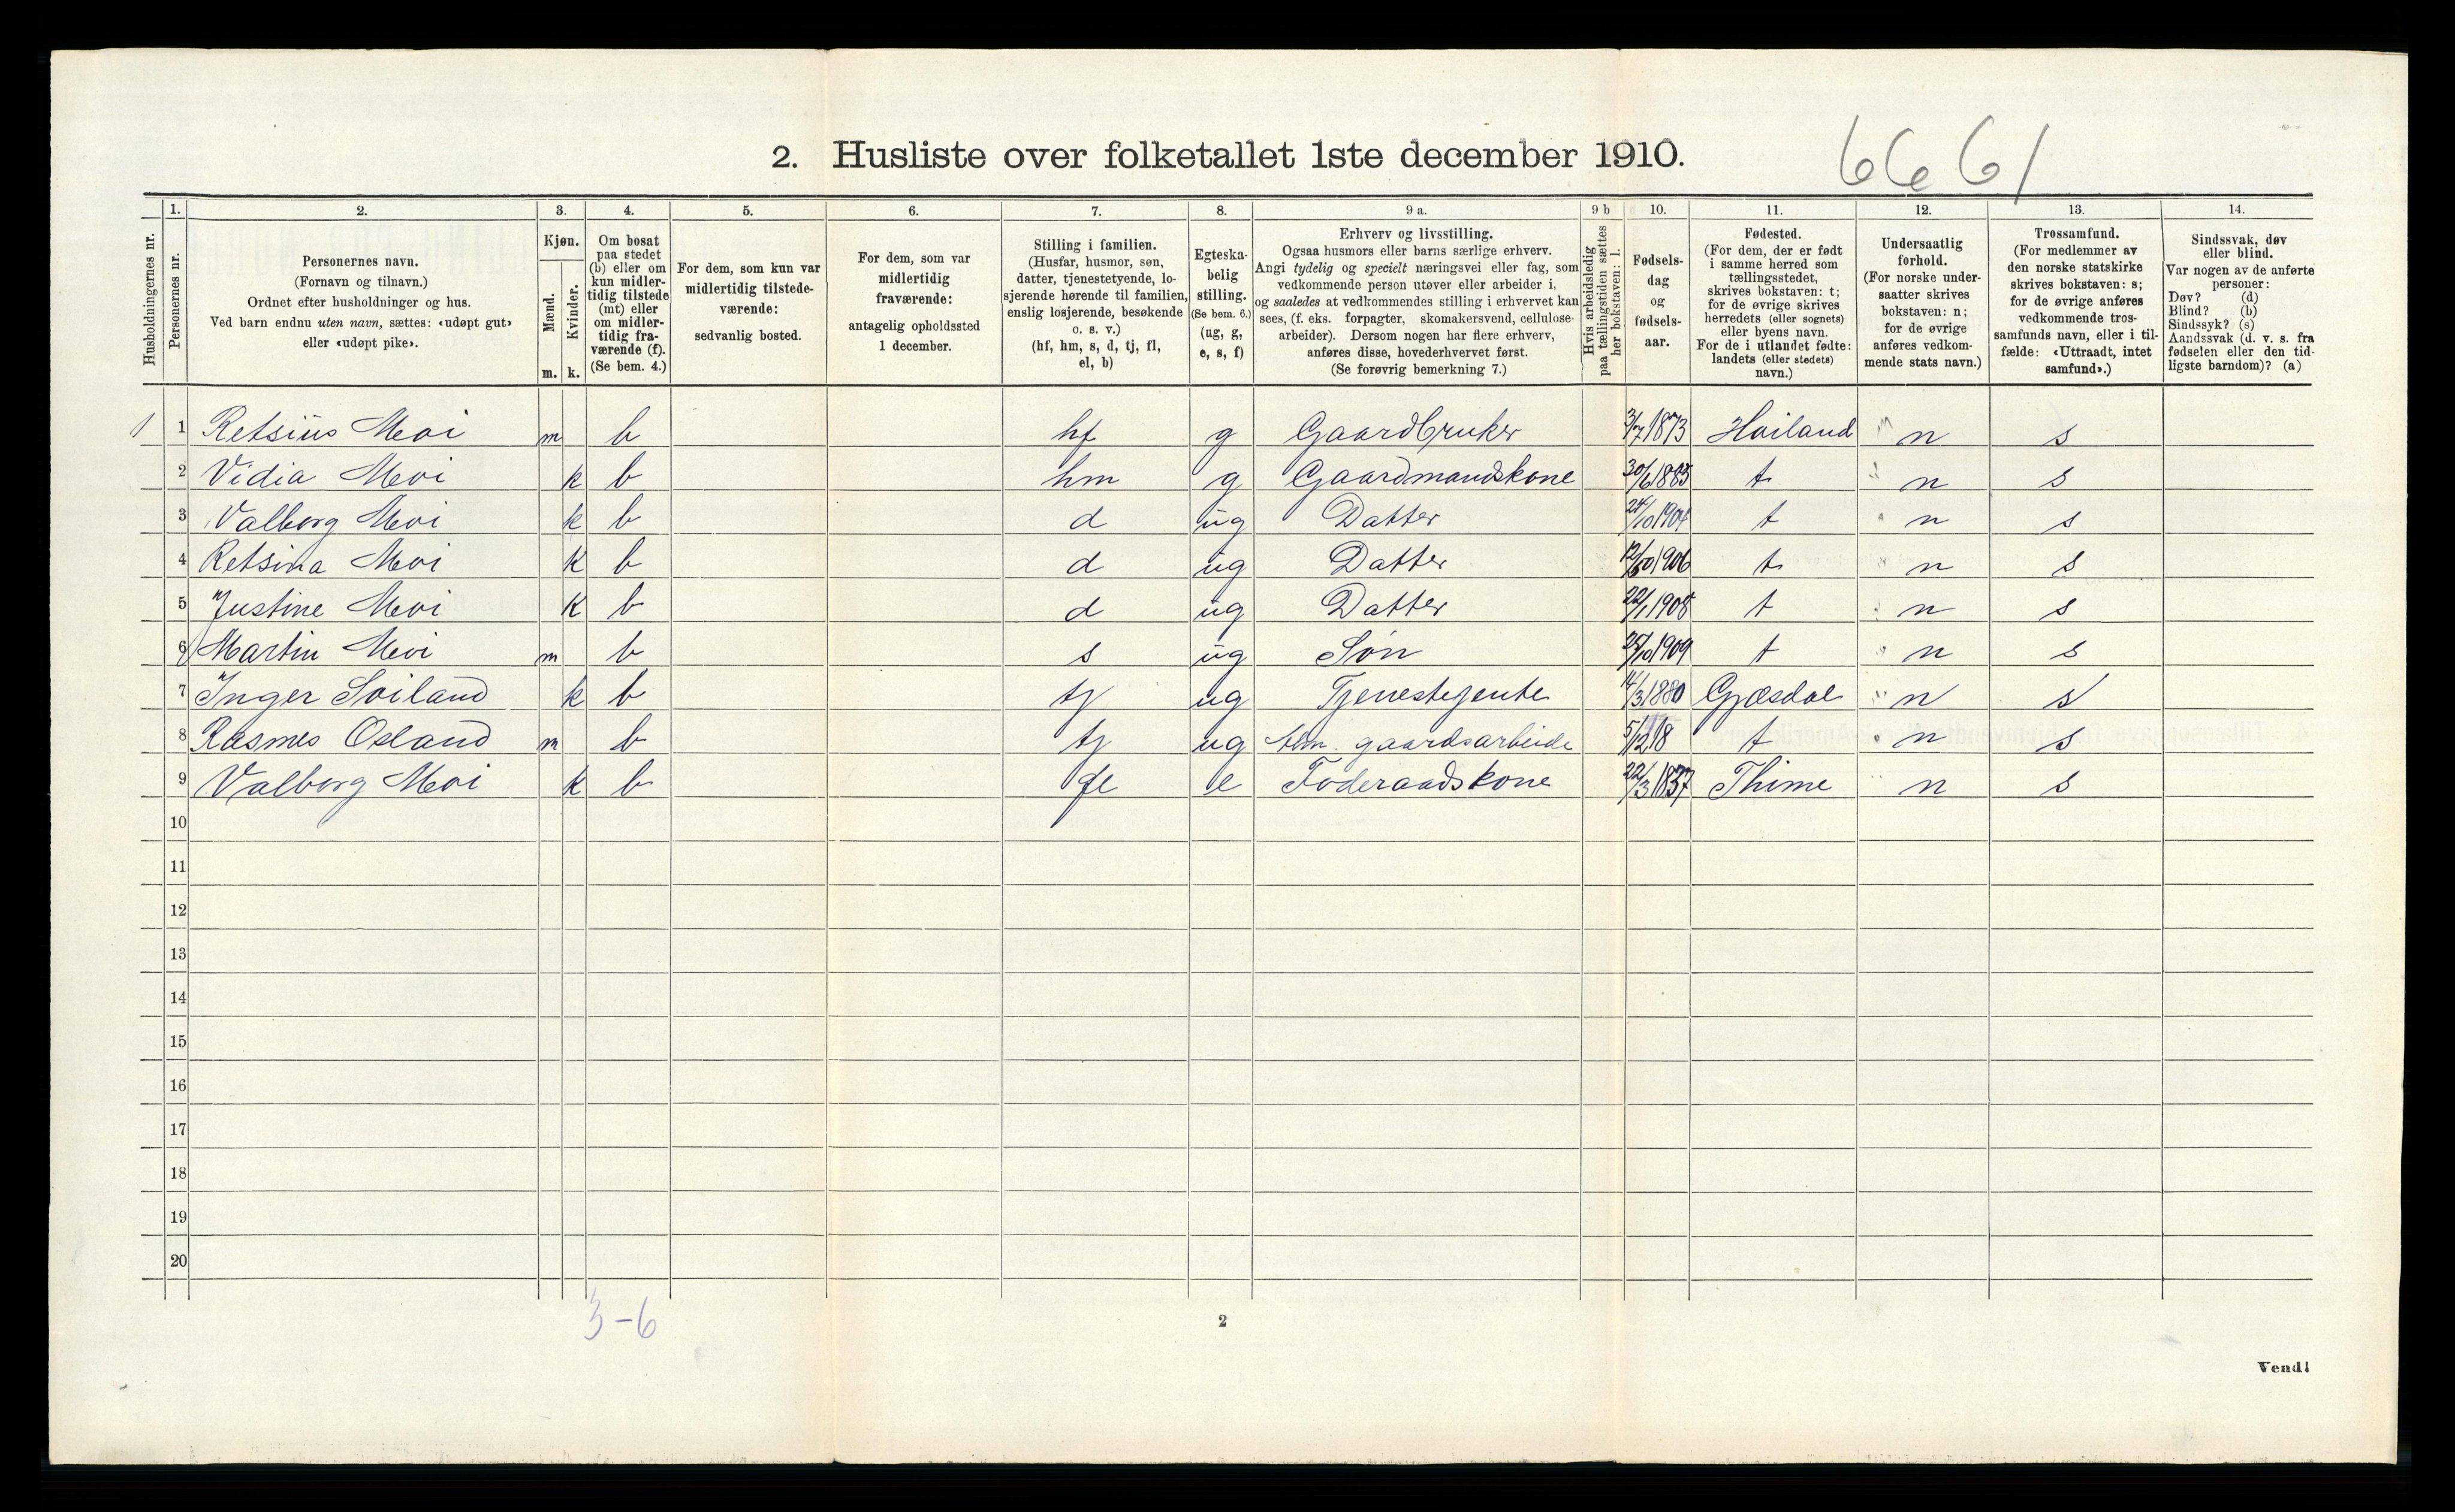 2. Husliste over folketallet 1ste december 1910.
6661
Husholdningernes nr.
1. Personernes nr.
2. Personernes navn. (Fornavn og tilnavn.) Ordnet efter husholdninger og hus. Ved barn endnu uten navn, sættes: «udøpt gut» eller «udøpt pike».
3. Kjøn. Mænd. m. Kvinder. k.
4. Om bosat paa stedet (b) eller om kun midlertidig tilstede (mt) eller om midlertidig fraværende (f). (Se bem. 4.)
5. For dem, som kun var midlertidig tilstedeværende: sedvanlig bosted.
6. For dem, som var midlertidig fraværende: antagelig opholdssted 1 december.
7. Stilling i familien. (Husfar, husmor, søn, datter, tjenestetyende, losjerende hørende til familien, enslig losjerende, besøkende o. s. v.) (hf, hm, s, d, tj, fl, el, b)
8. Egteskabelig stilling. (Se bem. 6.) (ug, g, e, s, f)
9 a. Erhverv og livsstilling. Ogsaa husmors eller barns særlige erhverv. Angi tydelig og specielt næringsvei eller fag, som vedkommende person utøver eller arbeider i, og saaledes at vedkommendes stilling i erhvervet kan sees, (f. eks. forpagter, skomakersvend, cellulosearbeider). Dersom nogen har flere erhverv, anføres disse, hovederhvervet først. (Se forøvrig bemerkning 7.)
9 b Hvis arbeidsledig paa tællingstiden sættes her bokstaven: l.
10. Fødselsdag og fødselsaar.
11. Fødested. (For dem, der er født i samme herred som tællingsstedet, skrives bokstaven: t; for de øvrige skrives herredets (eller sognets) eller byens navn. For de i utlandet fødte: landets (eller stedets) navn.)
12. Undersaatlig forhold. (For norske undersaatter skrives bokstaven: n; for de øvrige anføres vedkommende stats navn.)
13. Trossamfund. (For medlemmer av den norske statskirke skrives bokstaven: s; for de øvrige anføres vedkommende trossamfunds navn, eller i tilfælde: «Uttraadt, intet samfund».)
14. Sindssvak, døv eller blind. Var nogen av de anførte personer: Døv? (d) Blind? (b) Sindssyk? (s) Aandssvak (d. v. s. fra fødselen eller den tidligste barndom)? (a)
1 1 Retsius Moi m b hf g Gaardbruker 3/7 1873 Hoiland n s
2 Vidia Moi k b hm g Gaardmandskone 30/6 1885 t n s
3 Valborg Moi k b d ug Datter 24/10 1904 t n s
4 Retsina Moi k b d ug Datter 12/10 1906 t n s
5 Justine Moi k b d ug Datter 22/1 1908 t n s
6 Martin Moi m b s ug Søn 25/10 1909 t n s
7 Inger Soiland k b tj ug Tjenestejente 14/3 1880 Gjæsdal n s
8 Rasmes Osland m b tj ug alm. gaardsarbeide 5/12 18 t n s
9 Valborg Moi k b fl e Foderaadskone 22/3 1837 Thime n s
10
11
12
13
14
15
16
17
18
19
20
3-6
2
Vend!